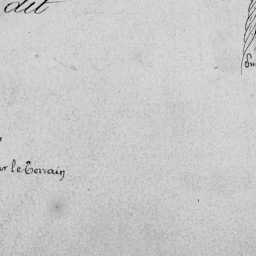 dit
r le Terrain